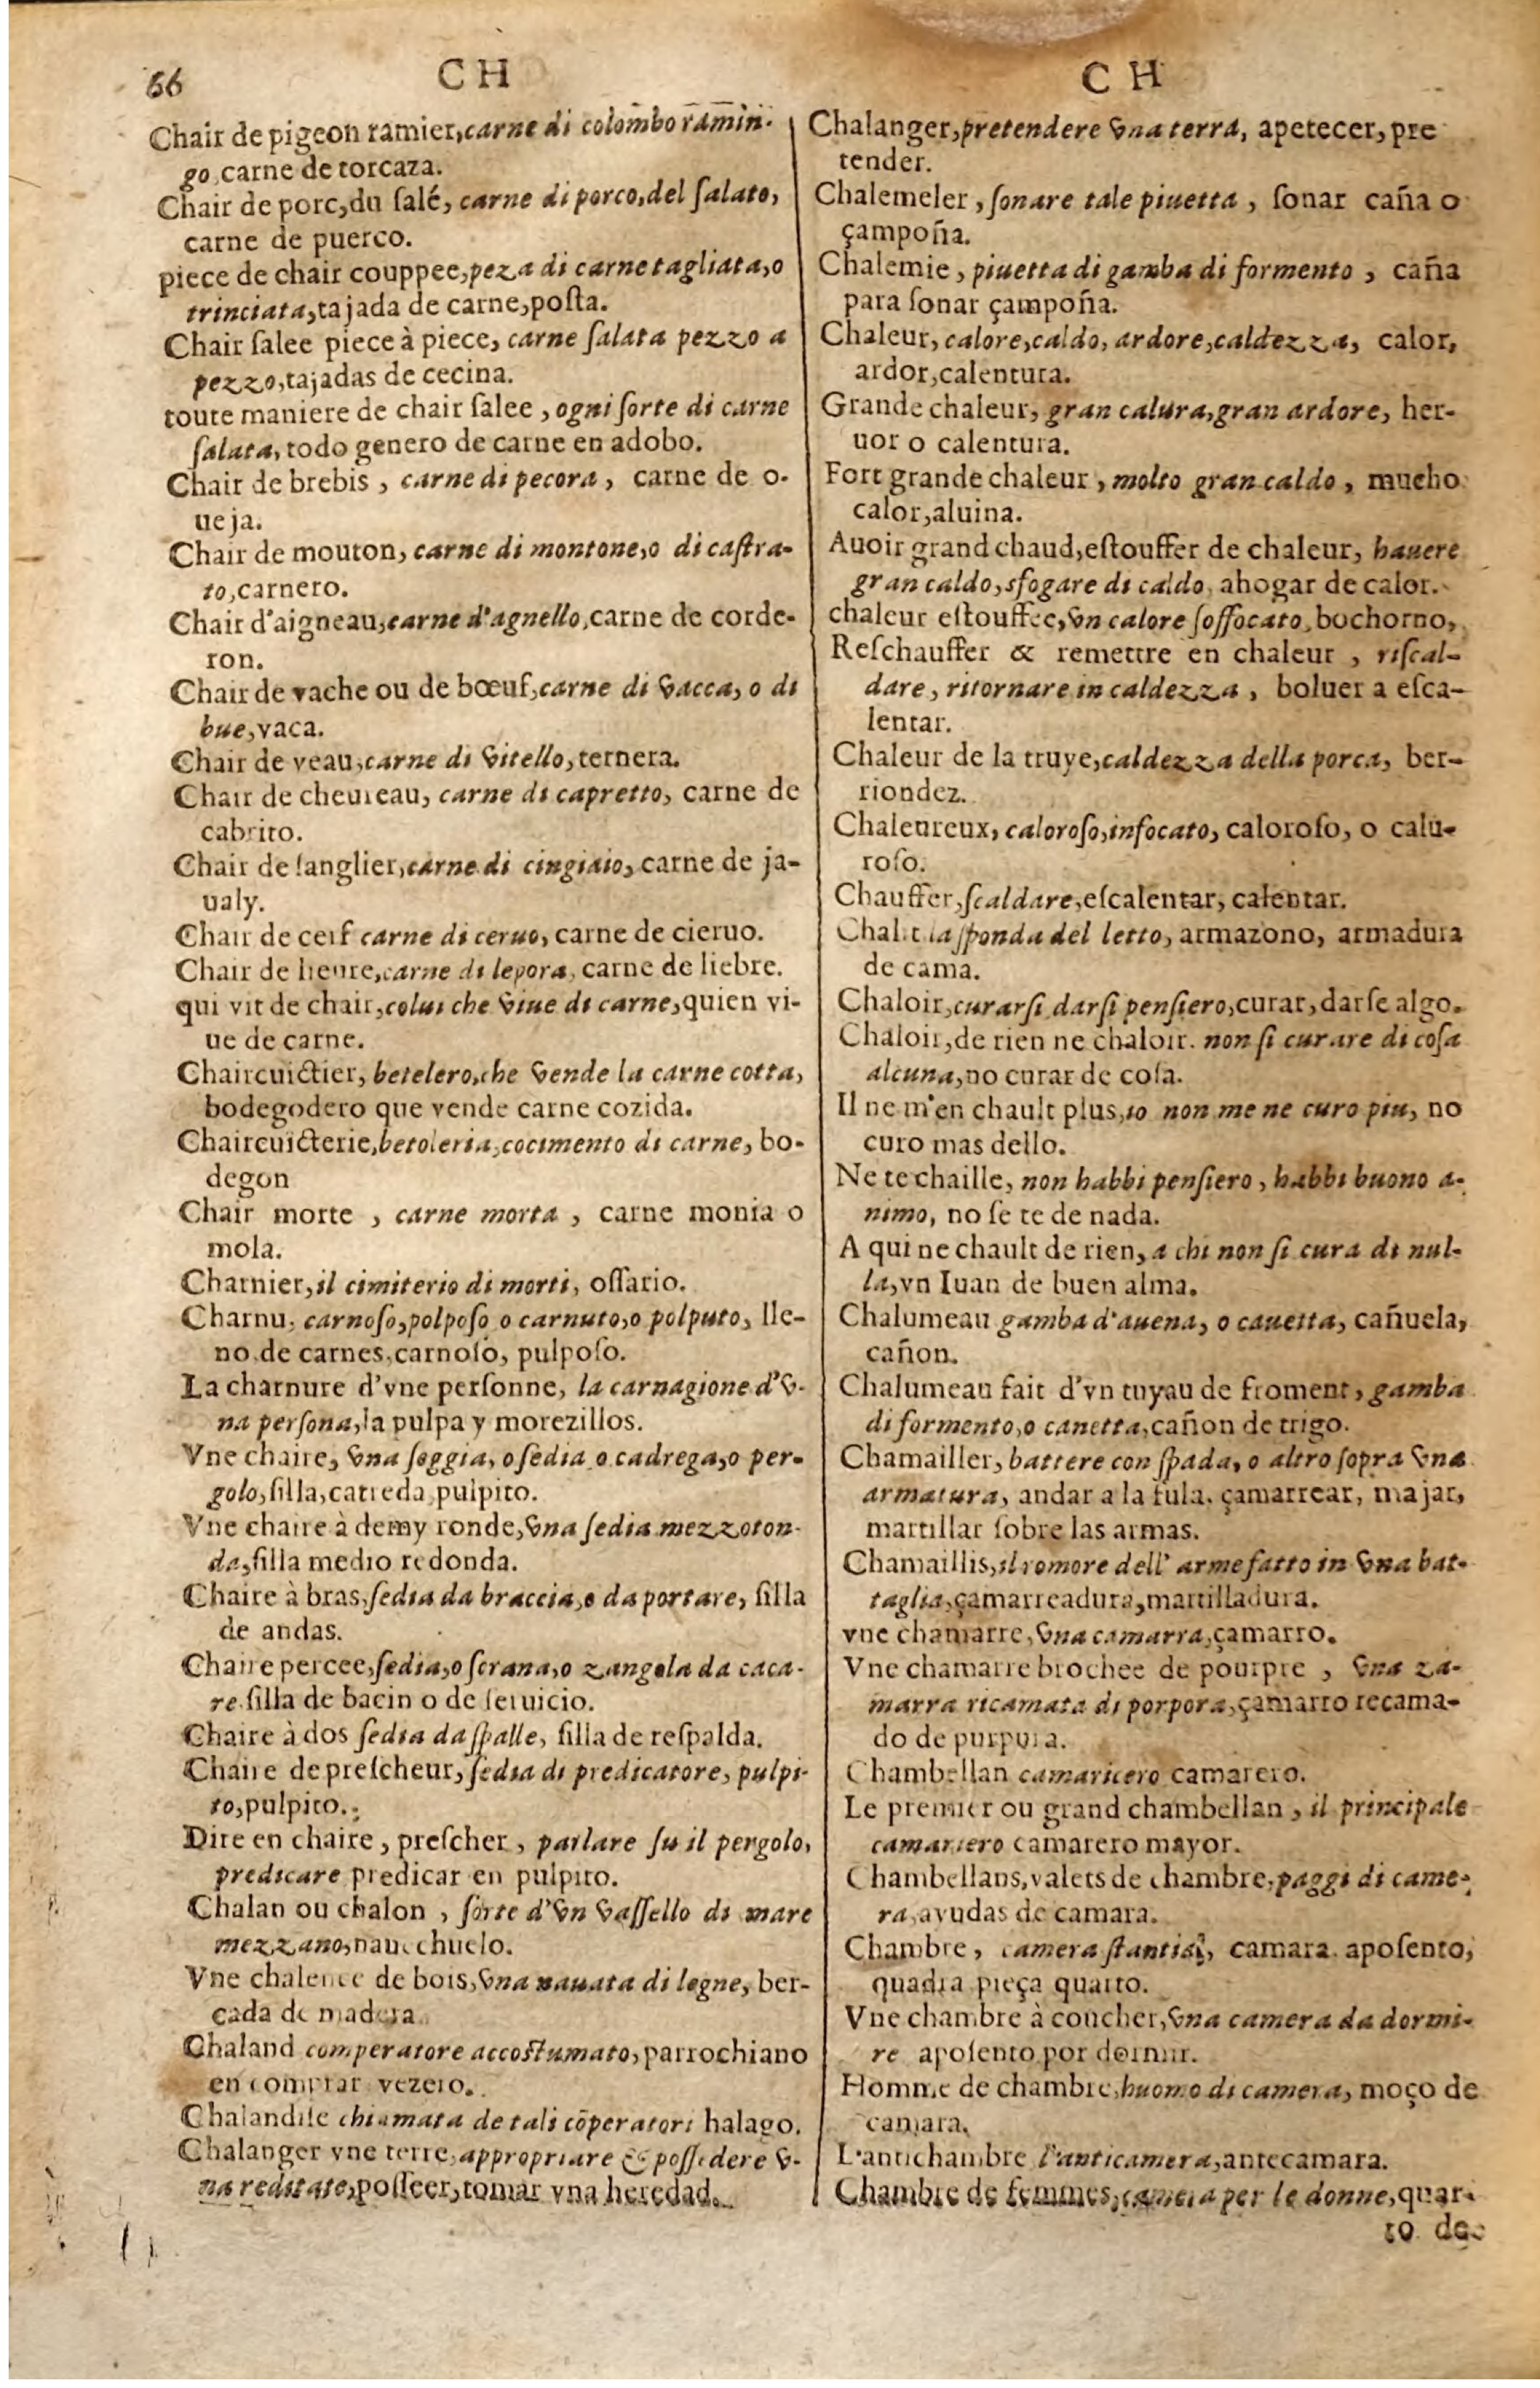 66
CH
Chair de pigeon ramier, carne di colombo ramin-
go, carne de torcaza.
Chair de porc, du ſalé, carne di porco, del ſalato,
carne de puerco.
piece de chair couppee, peza di carne tagliata, o
trinciata, tajada de carne, poſta.
Chair ſalee piece à piece, carne ſalata pezzo a
pezzo, tajadas de cecina.
toute maniere de chair ſalee, ogni ſorte di carne
ſalata, todo genero de carne en adobo.
Chair de brebis, carne di pecora, carne de o-
ueja.
Chair de mouton, carne di montone, o di caſtra-
to, carnero.
Chair d'aigneau, carne d'agnello, carne de corde-
ron.
Chair de vache ou de bœuf, carne di vacca, o di
bue, vaca.
Chair de veau, carne di vitello, ternera.
Chair de cheureau, carne di capretto, carne de
cabrito.
Chair de ſanglier, carne di cingiaio, carne de ja-
ualy.
Chair de cerf carne di ceruo, carne de cieruo.
Chair de lieure, carne di lepora, carne de liebre.
qui vit de chair, colui che viue di carne, quien vi-
ue de carne.
Chaircuictier, betelero, che vende la carne cotta,
bodegodero que vende carne cozida.
Chaircuicterie, betoleria, cocimento di carne, bo-
degon
Chair morte, carne morta, carne monia o
mola.
Charnier, il cimiterio di morti, oſſario.
Charnu, carnoſo, polpoſo o carnuto, o polputo, lle-
no de carnes, carnoſo, pulpoſo.
La charnure d'vne perſonne, la carnagione d'v-
na perſona, la pulpa y morezillos.
Vne chaire, vna ſeggia, o ſedia o cadrega, o per-
golo, ſilla, catreda, pulpito.
Vne chaire à demy ronde, vna ſedia mezzoton-
da, ſilla medio redonda.
Chaire à bras, ſedia da braccia, o da portare, ſilla
de andas.
Chaire percee, ſedia, o ſcrana, o zangola da caca-
re, ſilla de bacin o de ſeruicio.
Chaire à dos ſedia da ſpalle, ſilla de reſpalda.
Chaire de preſcheur, ſedia di predicatore, pulpi-
to, pulpito.
Dire en chaire, preſcher, parlare ſu il pergolo,
predicare predicar en pulpito.
Chalan ou chalon, ſorte d'vn vaſſello di mare
mezzano, nauechuelo.
Vne chalence de bois, vna nauata di legne, ber-
cada de madera
Chaland comperatore accoſtumato, parrochiano
en comprar vezero.
Chalandiſe chiamata de tali cōperatori halago.
Chalanger vne terre, appropriare & poſſedere v-
na reditate, poſſeer, tomar vna heredad.
CH
Chalanger, pretendere vna terra, apetecer, pre
tender.
Chalemeler, ſonare tale piuetta, ſonar caña o
çampoña.
Chalemie, piuetta di gamba di formento, caña
para ſonar çampoña.
Chaleur, calore, caldo, ardore, caldezza, calor,
ardor, calentura.
Grande chaleur, gran calura, gran ardore, her-
uor o calentura.
Fort grande chaleur, molto gran caldo, mucho
calor, aluina.
Auoir grand chaud, eſtouffer de chaleur, hauere
gran caldo, sfogare di caldo, ahogar de calor.
chaleur eſtouffee, vn calore ſoffocato, bochorno,
Reſchauffer & remettre en chaleur, riſcal-
dare, ritornare in caldezza, boluer a eſca-
lentar.
Chaleur de la truye, caldezza della porca, ber-
riondez.
Chaleureux, caloroſo, infocato, caloroſo, o calu-
roſo.
Chauffer, ſcaldare, eſcalentar, calentar.
Chalit la ſponda del letto, armazono, armadura
de cama.
Chaloir, curarſi darſi penſiero, curar, darſe algo.
Chaloir, de rien ne chaloir. non ſi curare di coſa
alcuna, no curar de coſa.
Il ne m'en chault plus, io non me ne curo piu, no
curo mas dello.
Ne te chaille, non habbi penſiero, habbi buono a-
nimo, no ſe te de nada.
A qui ne chault de rien, a chi non ſi cura di nul-
la, vn Iuan de buen alma.
Chalumeau gamba d'auena, o cauetta, cañuela,
cañon.
Chalumeau fait d'vn tuyau de froment, gamba
di formento, o canetta, cañon de trigo.
Chamailler, battere con ſpada, o altro ſopra vna
armatura, andar a la fula, çamarrear, majar,
martillar ſobre las armas.
Chamaillis, il romore dell' arme fatto in vna bat-
taglia, çamarreadura, martilladura.
vne chamarre, vna camarra, çamarro.
Vne chamarre brochee de pourpre, vna za-
marra ricamata di porpora, çamarro recama-
do de purpura.
Chambellan camariero camarero.
Le premier ou grand chambellan, il principale
camariero camarero mayor.
Chambellans, valets de chambre, paggi di came-
ra, ayudas de camara.
Chambre, camera ſtantia, camara. apoſento,
quadra pieça quarto.
Vne chambre à coucher, vna camera da dormi-
re apoſento por dormir.
Homme de chambre, huomo di camera, moço de
camara.
L'antichambre l'anticamera, antecamara.
Chambre de femmes, camera per le donne, quar-
to de